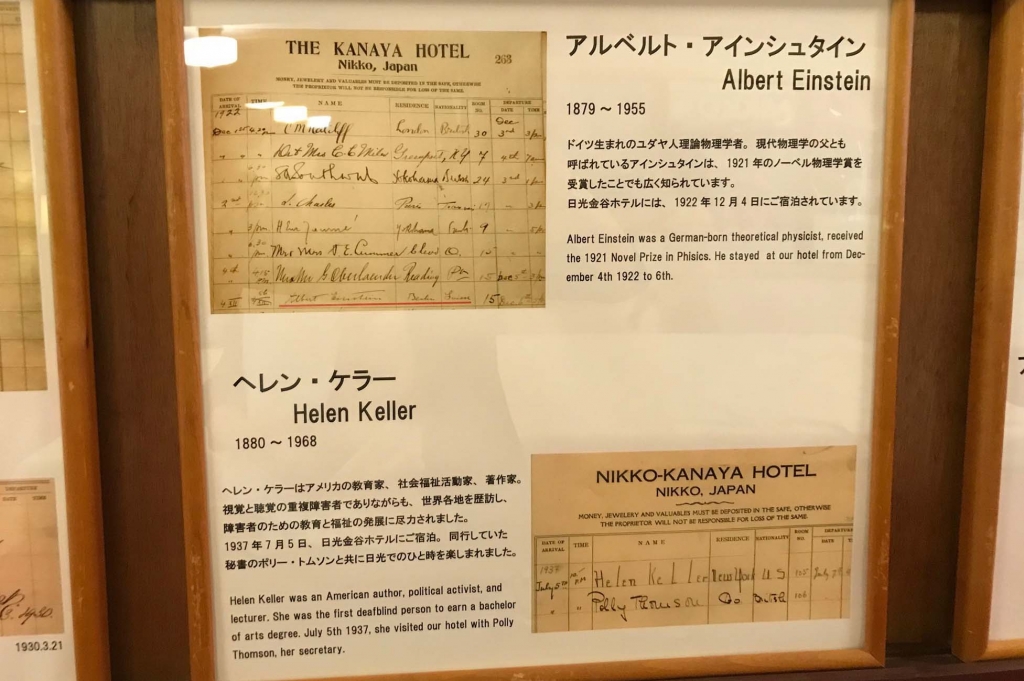 THE KANAYA HOTEL
Nikko, Japan
263
MONEY, JEWELERY AND VALUABLES MUST BE DEPOSITED IN THE SAFE, OTHERWISE
THE PROPRIETOR WILL NOT BE RESPONSIBLE FOR LOSS OF THE SAME.
DATE OF ARRIVAL TIME NAME RESIDENCE NATIONALITY ROOM NO. DEPARTURE DATE TIME
1922 Dec
London British 30 3rd
7 4th
Yokohama British 24 3rd
2nd Charles Paris
Yokohama 9
Mrs
4th Oberlaender Reading Pa 15
Albert Einstein Berlin 15
アルベルト・アインシュタイン
Albert Einstein
1879 ~ 1955
ドイツ生まれのユダヤ人理論物理学者。現代物理学の父とも
呼ばれているアインシュタインは、1921 年のノーベル物理学賞を
受賞したことでも広く知られています。
日光金谷ホテルには、1922 年 12 月 4 日にご宿泊されています。
Albert Einstein was a German-born theoretical physicist, received
the 1921 Novel Prize in Phisics. He stayed at our hotel from Dec-
ember 4th 1922 to 6th.
ヘレン・ケラー
Helen Keller
1880 ~ 1968
ヘレン・ケラーはアメリカの教育家、社会福祉活動家、著作家。
視覚と聴覚の重複障害者でありながらも、世界各地を歴訪し、
障害者のための教育と福祉の発展に尽力されました。
1937 年 7 月 5 日、日光金谷ホテルにご宿泊。同行していた
秘書のポリー・トムソンと共に日光でのひと時を楽しまれました。
Helen Keller was an American author, political activist, and
lecturer. She was the first deafblind person to earn a bachelor
of arts degree. July 5th 1937, she visited our hotel with Polly
Thomson, her secretary.
NIKKO-KANAYA HOTEL
NIKKO, JAPAN
MONEY, JEWELERY AND VALUABLES MUST BE DEPOSITED IN THE SAFE, OTHERWISE
THE PROPRIETOR WILL NOT BE RESPONSIBLE FOR LOSS OF THE SAME.
DATE OF ARRIVAL TIME NAME RESIDENCE NATIONALITY ROOM NO. DEPARTURE DATE
July 5th Helen Keller New York U S 105 July
Polly Thomson Do British 106
DEPARTURE
DATE TIME
1930.3.21